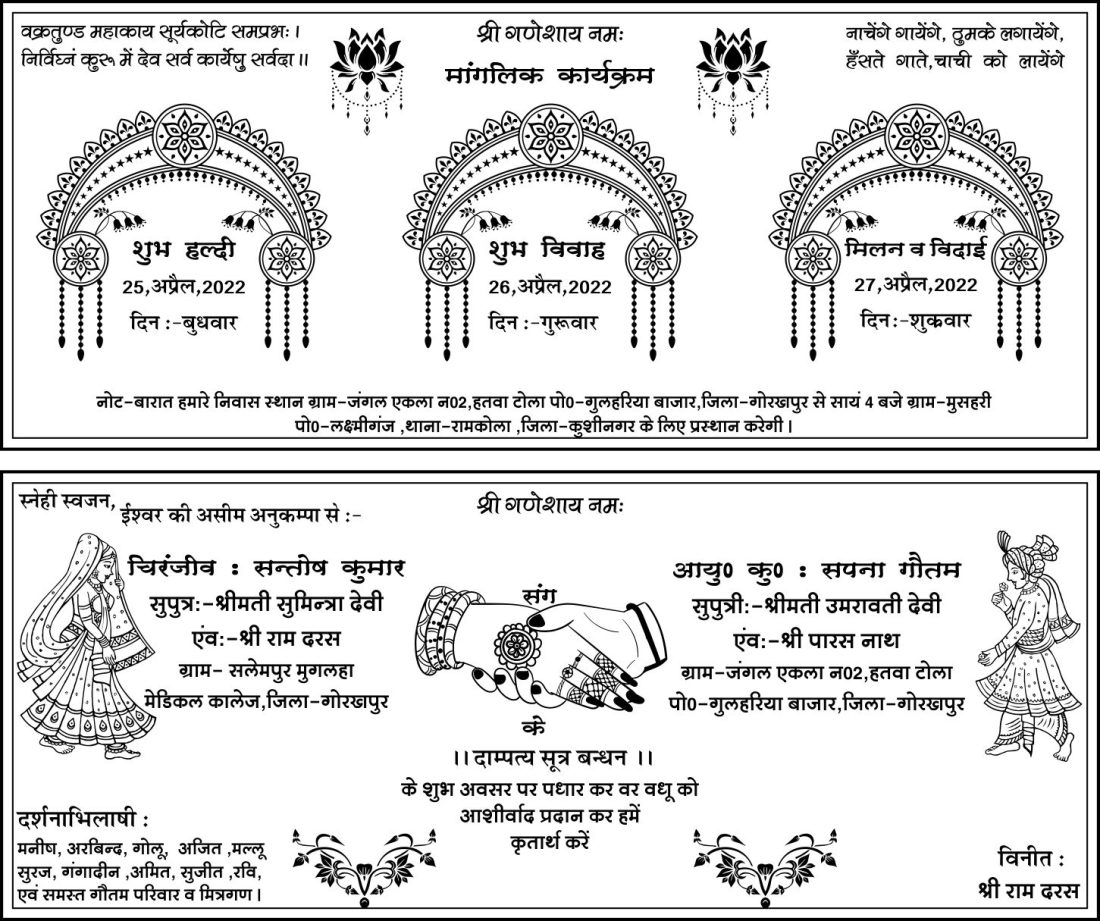 वक्रतुण्ड महाकाय सूर्यकोटि समप्रभः।
निर्विघ्नं कुरू में देव सर्व कार्येषु सर्वदा॥
श्री गणेशाय नमः
मांगलिक कार्यक्रम
नाचेंगे गायेंगे, ठुमके लगायेंगे,
हँसते गाते,चाची को लायेंगे
शुभ हल्दी
25,अप्रैल,2022
दिन :-बुधवार
शुभ विवाह
26,अप्रैल,2022
दिन :-गुरूवार
मिलन व विदाई
27,अप्रैल,2022
दिन:-शुक्रवार
नोट-बारात हमारे निवास स्थान ग्राम-जंगल एकला न02,हतवा टोला पो0-गुलहरिया बाजार,जिला-गोरखपुर से सायं 4 बजे ग्राम-मुसहरी
पो0-लक्ष्मीगंज ,थाना-रामकोला ,जिला-कुशीनगर के लिए प्रस्थान करेगी।
श्री गणेशाय नमः
स्नेही स्वजन,
ईश्वर की असीम अनुकम्पा से :-
चिरंजीव : सन्तोष कुमार
सुपुत्र:-श्रीमती सुमिन्त्रा देवी
एंव:-श्री राम दरस
ग्राम- सलेमपुर मुगलहा
मेडिकल कालेज,जिला-गोरखपुर
संग
आयु0 कु0 : सपना गौतम
सुपुत्री:-श्रीमती उमरावती देवी
एंव:-श्री पारस नाथ
ग्राम-जंगल एकला न02,हतवा टोला
पो0-गुलहरिया बाजार,जिला-गोरखपुर
के
॥ दाम्पत्य सूत्र बन्धन ॥
के शुभ अवसर पर पधार कर वर वधू को
आशीर्वाद प्रदान कर हमें
कृतार्थ करें
दर्शनाभिलाषी :
मनीष, अरबिन्द, गोलू, अजित ,मल्लू
सुरज, गंगादीन ,अमित, सुजीत ,रवि,
एवं समस्त गौतम परिवार व मित्रगण।
विनीत :
श्री राम दरस